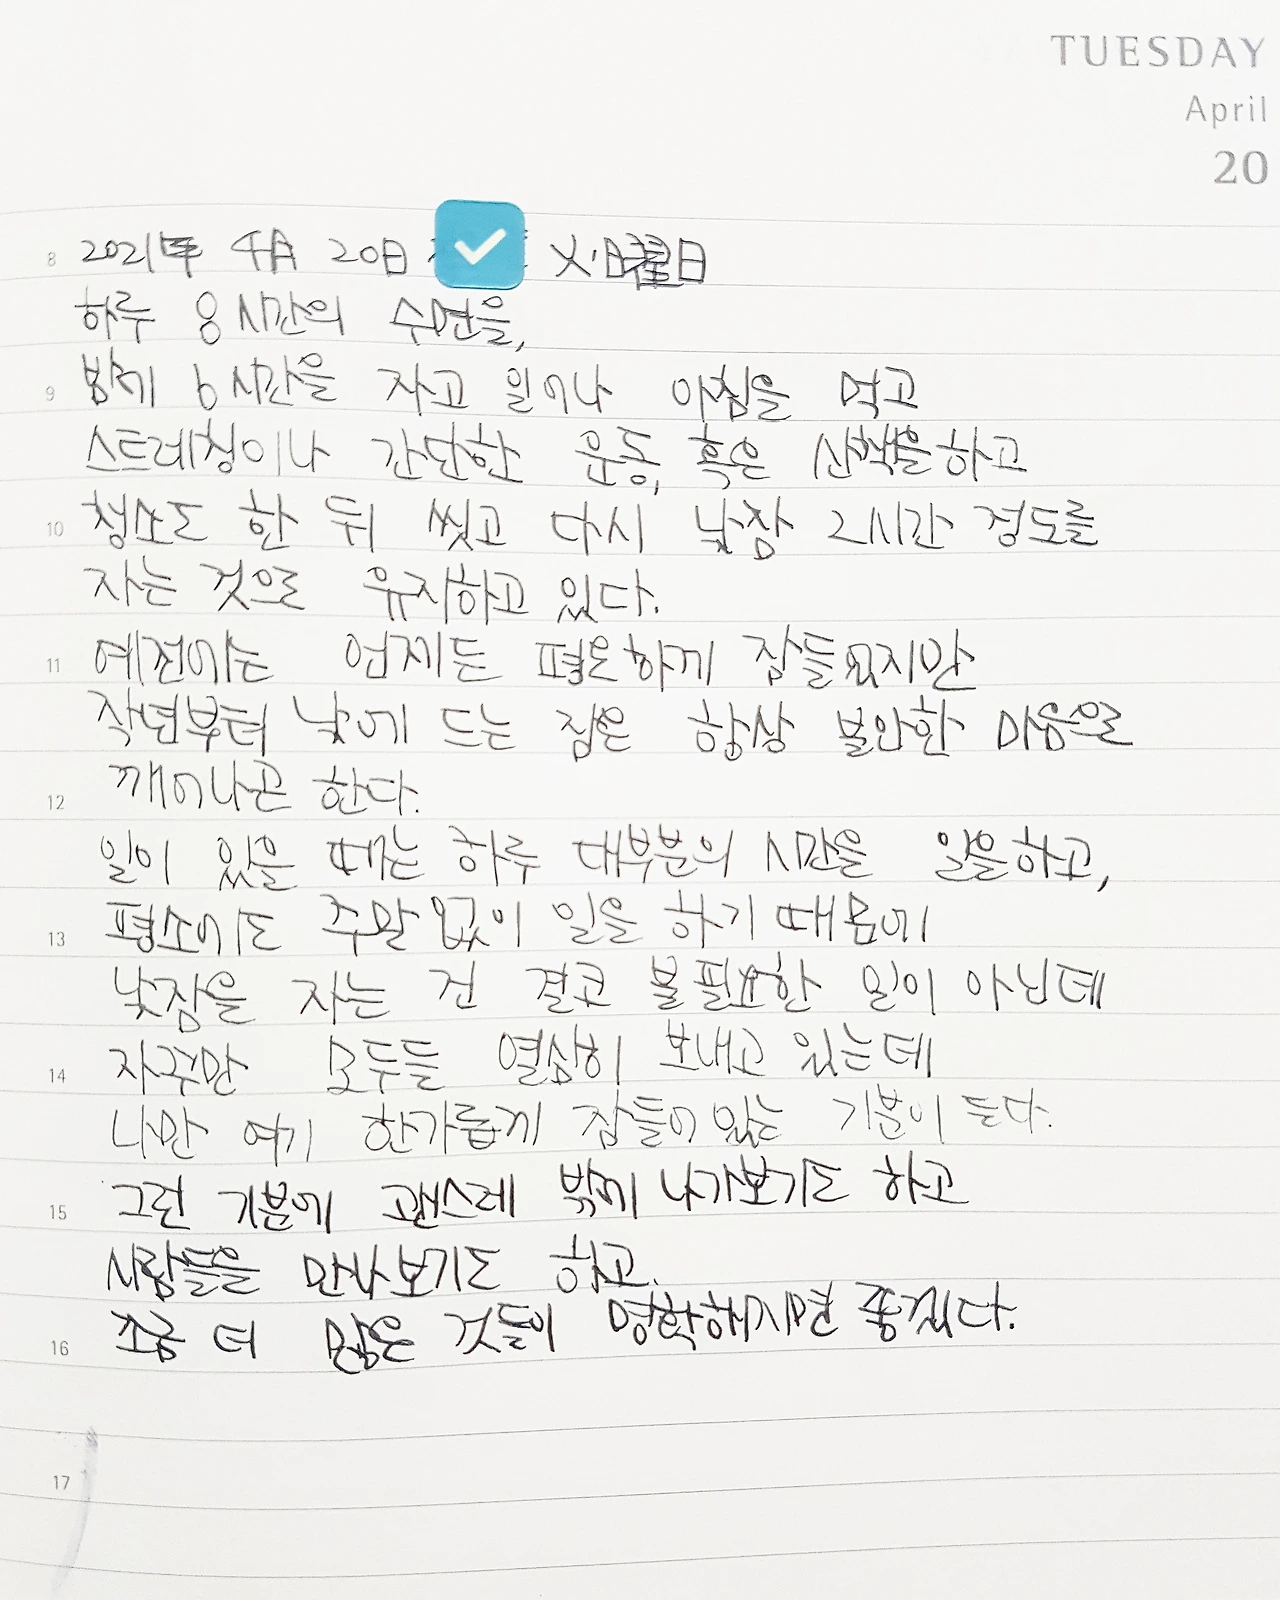 TUESDAY
April
20
8 2021年 4月 20日 火曜日
하루 8시간의 수면을,
9 밤에 6시간을 자고 일어나 아침을 먹고
스트레칭이나 간단한 운동, 혹은 산책을하고
10 청소도 한 뒤 씻고 다시 낮잠 2시간 정도를
자는 것으로 유지하고 있다.
11 예전에는 언제든 평온하게 잠들었지만
작년부터 낮에 드는 잠은 항상 불안한 마음으로
12 깨어나곤 한다.
일이 있을 때는 하루 대부분의 시간을 일을하고,
13 평소에도 주말없이 일을 하기 때문에
낮잠을 자는 건 결코 불필요한 일이 아닌데
14 자꾸만 모두들 열심히 보내고 있는데
나만 여기 한가롭게 잠들어 있는 기분이 든다.
15 그런 기분에 괜스레 밖에 나가보기도 하고
사람들을 만나보기도 하고.
16 조금 더 많은 것들이 명확해지면 좋겠다.
17